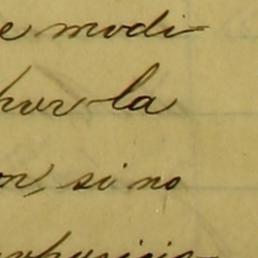 e modi-
por la
on, si no